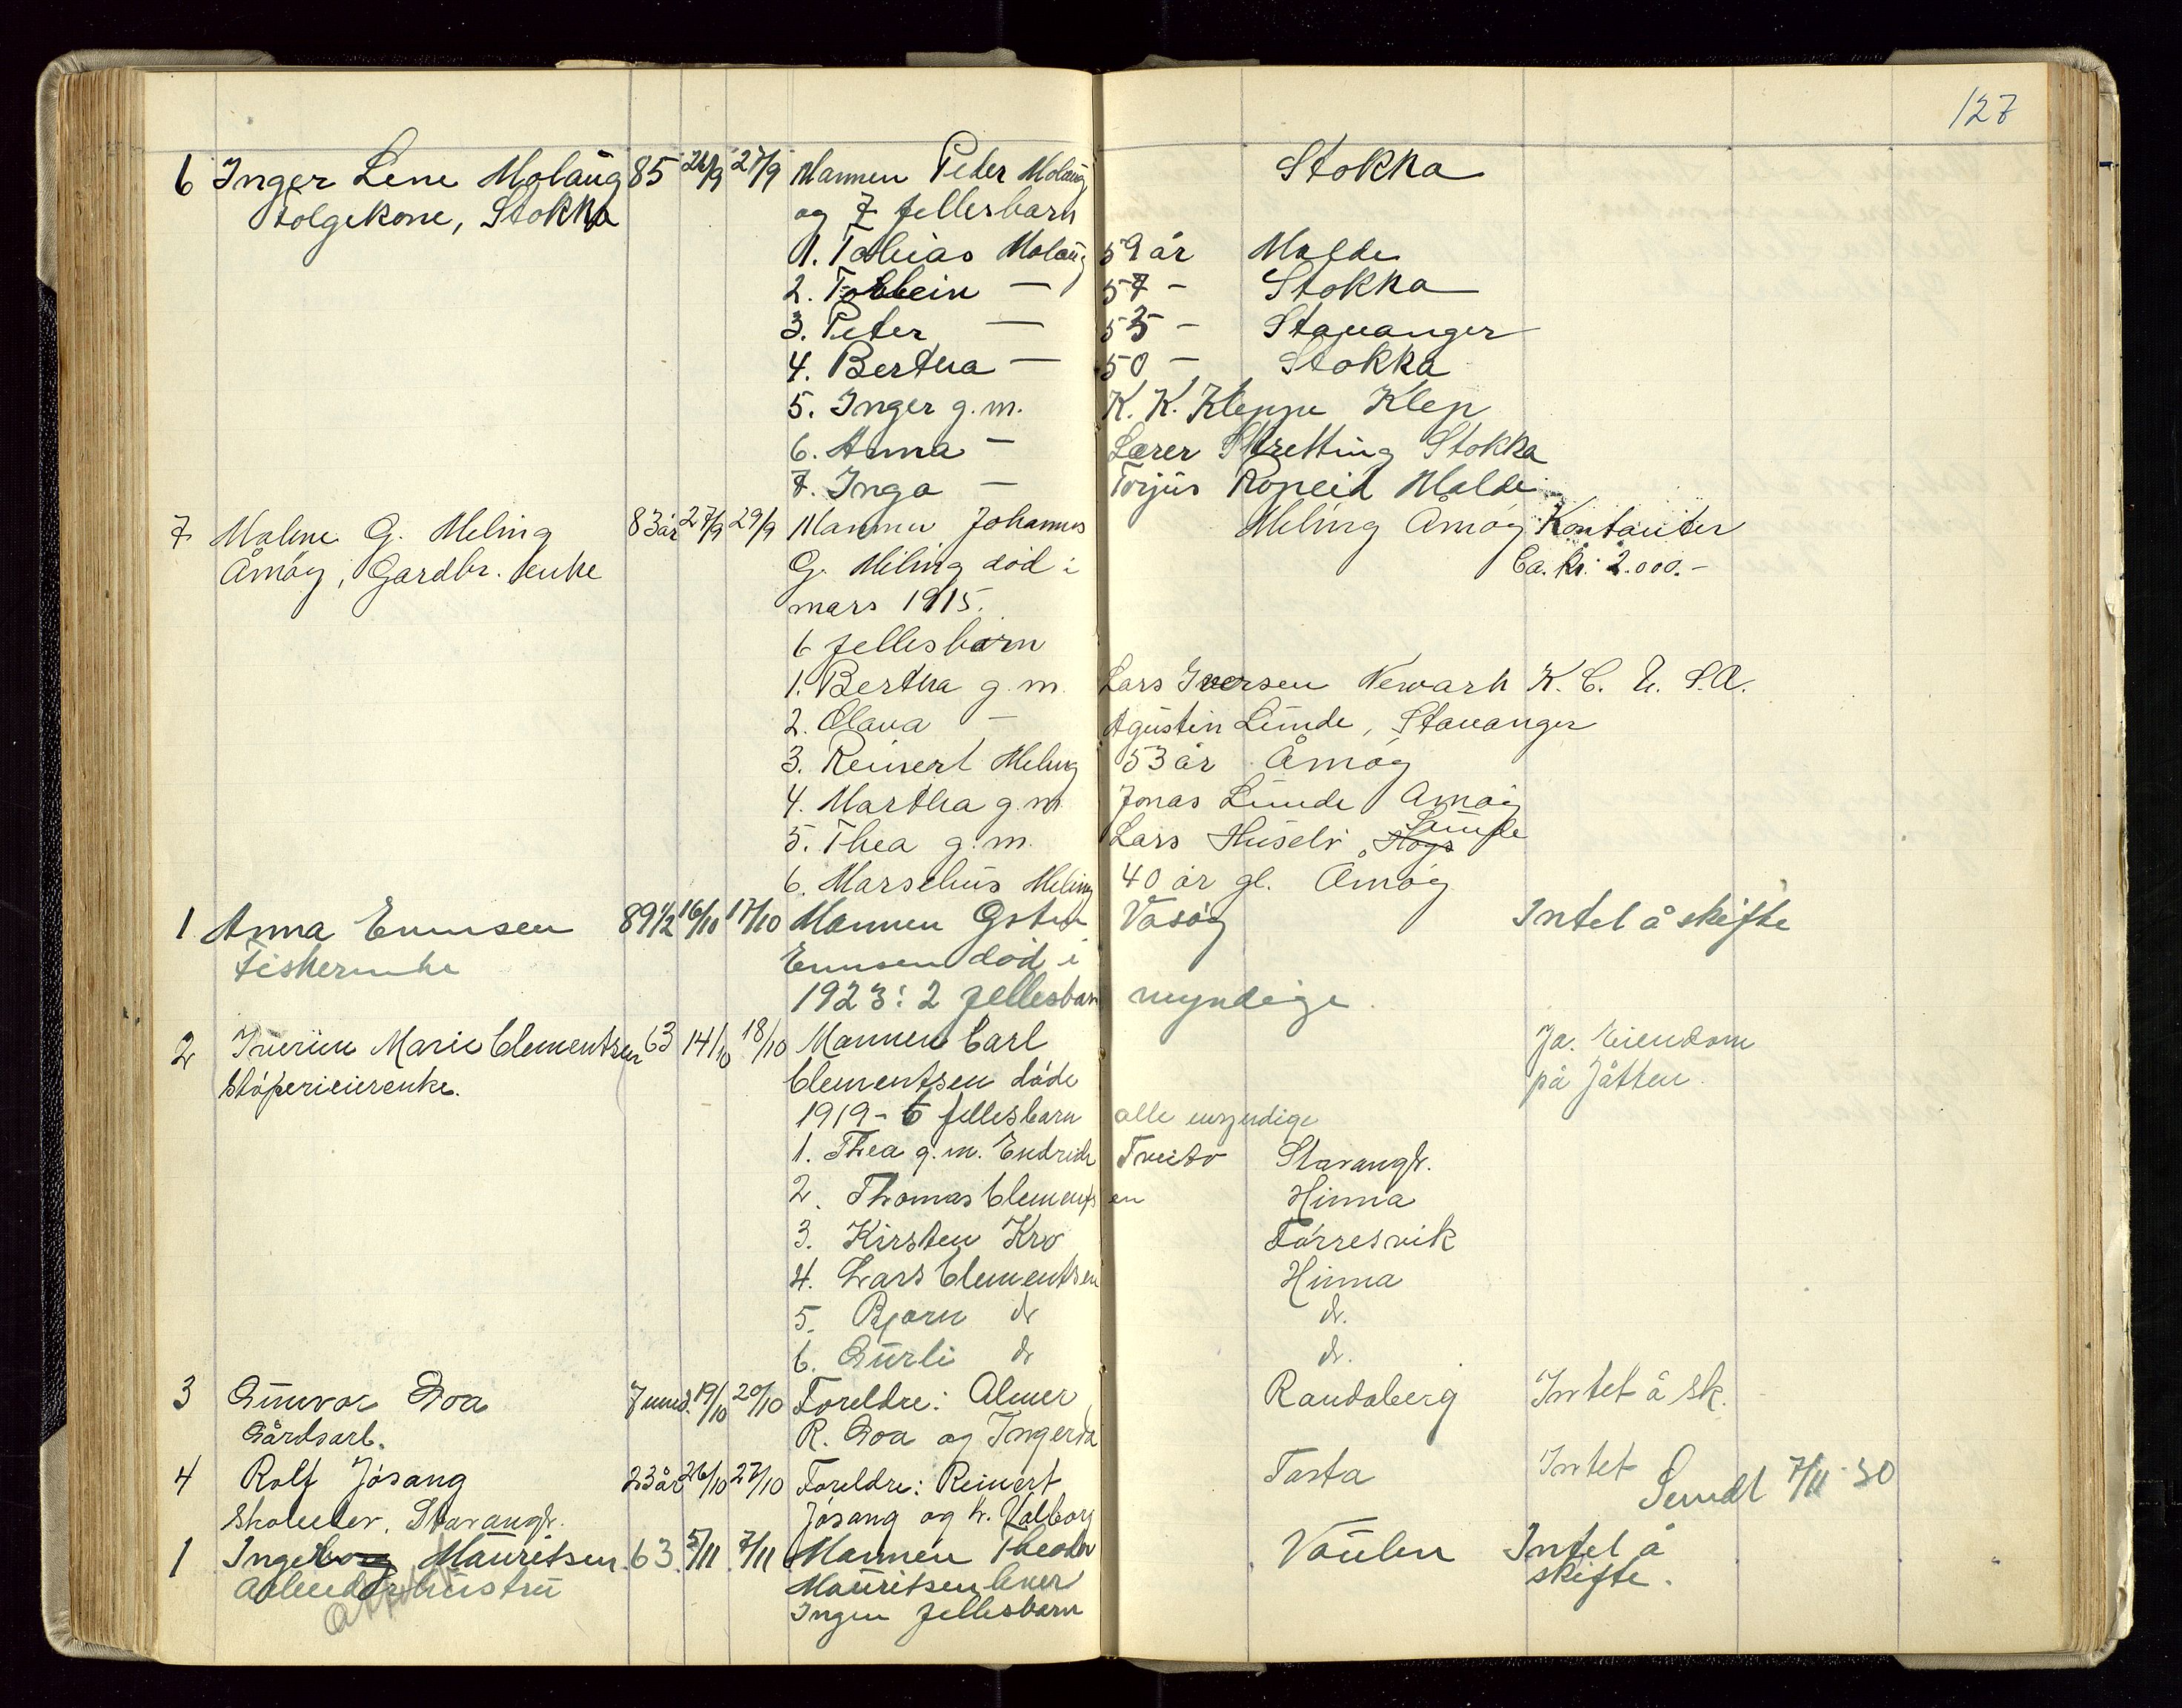 127
6 Inger Lene Molaug 85 26/9 27/9 Mannen Peder Molaug Stokka
Folgekone, Stokka og 7 fellesbarn
1. Tobias Molaug 59 år Malde
2. Torbein — 57 - Stokka
3. Peter — 53 - Stavanger
4. Bertha — 50 - Stokka
5. Inger g.m. K. K. Kleppe Klep
6. Anna — Lærer Skretting Stokka
7. Inga — Torjus Malde
7 Malene G. Meling 83 år 27/9 29/9 Mannen Johannes Meling Åmøy Kontanter
Åmøy, Gardbr. enke G. Meling død i Ca. kr. 2.000.-
mars 1915.
6 fellesbarn
1. Bertha g.m. Lars Iversen Newark U. S. A.
2. Olava — Agustin Lunde, Stavanger
3. Reinert Meling 53 år Åmøy
4. Martha g.m. Jonas Lunde Åmøy
5. Thea g.m. Lars Husebø, Lunde
6. Marselius Meling 40 år gl. Åmøy
1 Anna Enevsen 89 1/2 16/10 17/10 Mannen Vasøy Intet å skifte
Fiskerenke død i
1923: 2 fellesbarn myndige.
2 Marie Clementsen 63 14/10 18/10 Mannen Carl Ja. Eiendom
Støperieierenke. Clementsen døde på Jåtten.
1919 - 6 fellesbarn alle myndige
1. Thea g.m. Endride Tveito Stavangr.
2. Thomas Clementsen Hinna
3. Kirsten Kro Førresvik
4. Lars Clementsen Hinna
5. Bjørn do do.
6. Gurli do do.
3 Gunvor Goa 7 mnd. 19/10 20/10 Foreldre: Almer Randaberg Intet å sk.
Gårdsarb. R. Goa og Ingerda
4 Rolf Jøsang 23 år 26/10 27/10 Foreldre: Reinert Tasta Intet
Skoelev, Stavangr. Jøsang og h. Valborg Sendt 7/11 30
1 Ingeborg Mauritsen 63 5/11 7/11 Mannen Theodor Vaulen Intet å
Arbeiderhustru Mauritsen lever skifte.
Ingen fellesbarn